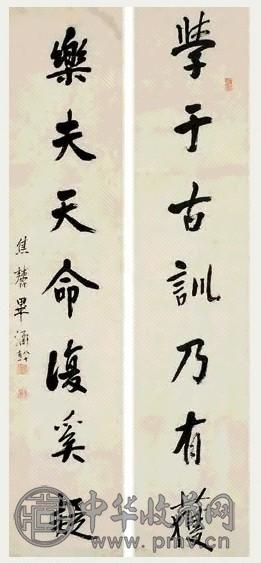 學于古訓乃有獲
樂夫天命復奚疑
焦麓畢涵
中华收藏网
www.pmv.cn